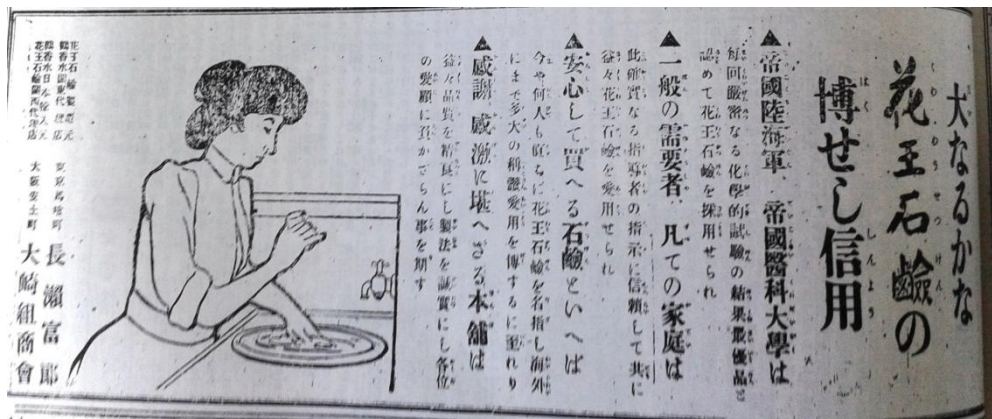 大なるかな
花王石鹼の
博せし信用
▲帝國陸海軍、帝國醫科大學は
毎回嚴密なる化學的試驗の結果最優品と
認めて花王石鹼を採用せられ
▲一般の需要者、凡ての家庭は
此確實なる指導者の指示に信賴して共に
益々花王石鹼を愛用せられ
▲安心して買へる石鹼といへば
今や何人も直ちに花王石鹼を名指し海外
にまで多大の稱讚愛用を博するに至れり
▲感謝、感激に堪へざる本舖は
益々品質を精良にし製法を誠實にし各位
の愛顧に負かざらん事を期す
花王石鹼製造元
鶴香水關東代理店
東京馬喰町
長瀨富郎
鶴香水日本輸入元
花王石鹼關西代理店
大阪安土町
大崎組商會